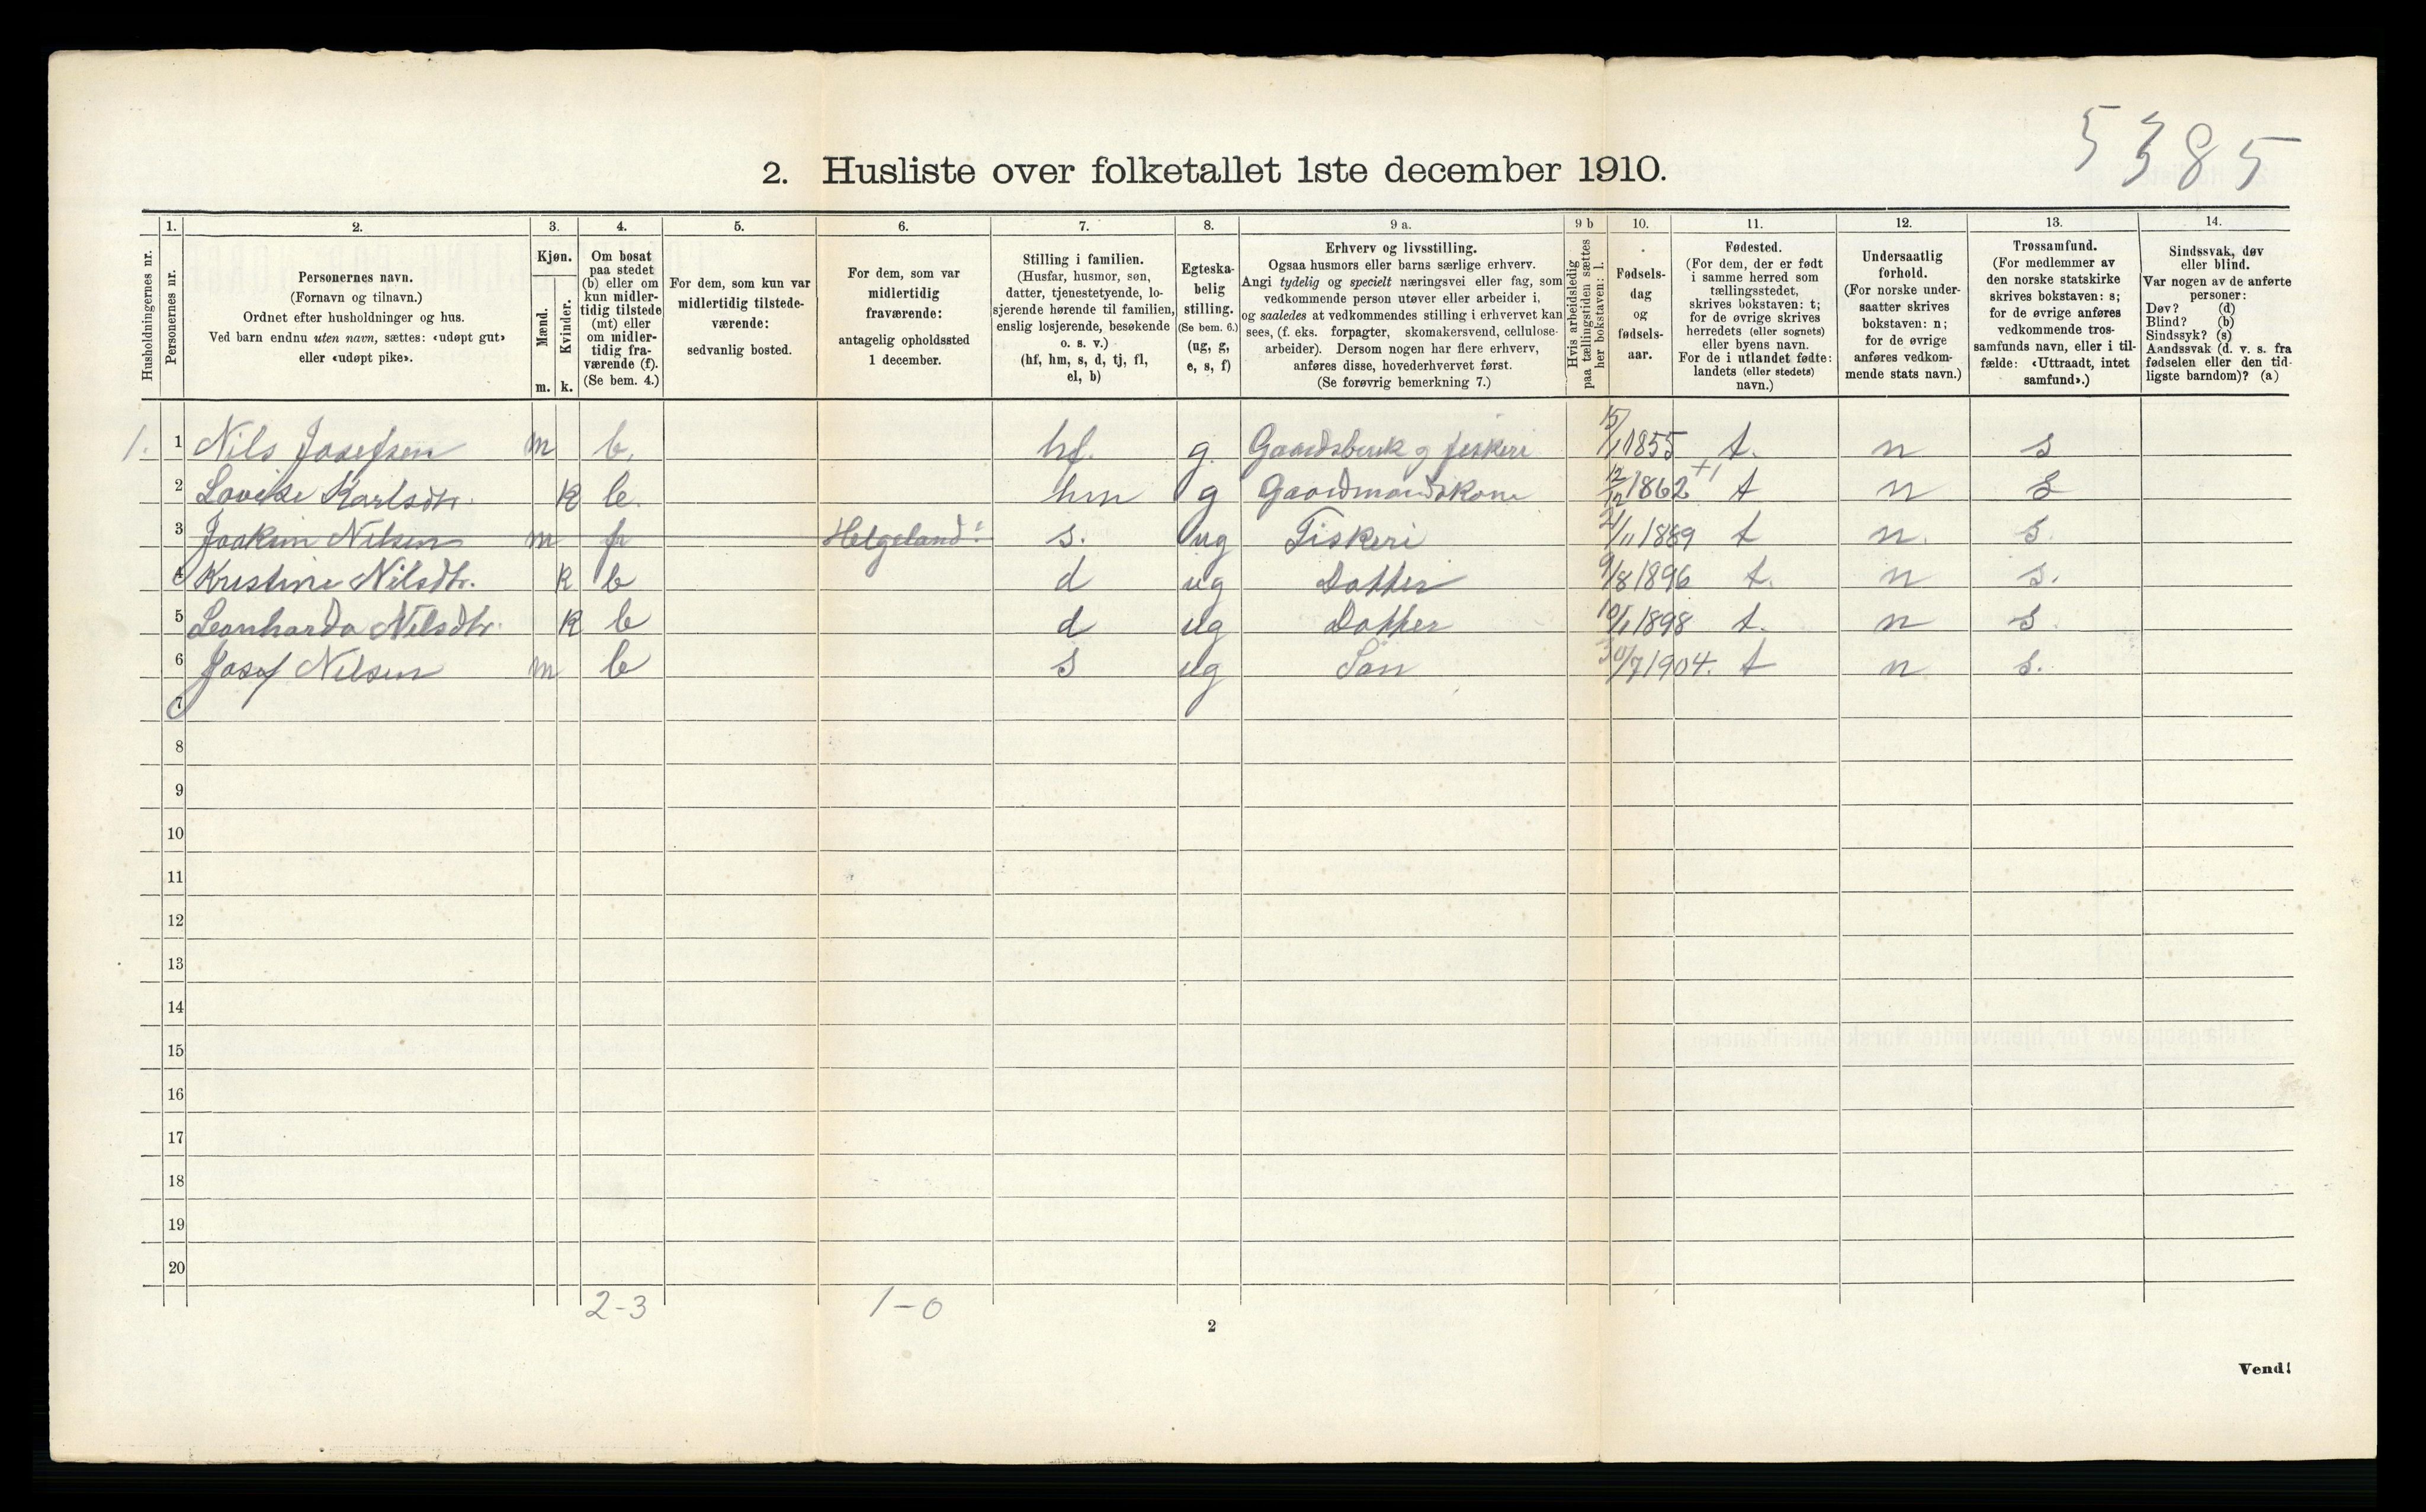 5385
2. Husliste over folketallet 1ste december 1910.
Husholdningernes nr.
1.
Personernes nr.
2.
Personernes navn.
(Fornavn og tilnavn.)
Ordnet efter husholdninger og hus.
Ved barn endnu uten navn, sættes: «udøpt gut»
eller «udøpt pike».
3.
Kjøn.
Mænd.
m.
Kvinder.
k.
4.
Om bosat
paa stedet
(b) eller om
kun midler-
tidig tilstede
(mt) eller
om midler-
tidig fra-
værende (f).
(Se bem. 4.)
5.
For dem, som kun var
midlertidig tilstede-
værende:
sedvanlig bosted.
6.
For dem, som var
midlertidig
fraværende:
antagelig opholdssted
1 december.
7.
Stilling i familien.
(Husfar, husmor, søn,
datter, tjenestetyende, lo-
sjerende hørende til familien,
enslig losjerende, besøkende
o. s. v.)
(hf, hm, s, d, tj, fl,
el, b)
8.
Egteska-
belig
stilling.
(Se bem. 6.)
(ug, g,
e, s, f)
9 a.
Erhverv og livsstilling.
Ogsaa husmors eller barns særlige erhverv.
Angi tydelig og specielt næringsvei eller fag, som
vedkommende person utøver eller arbeider i,
og saaledes at vedkommendes stilling i erhvervet kan
sees, (f. eks. forpagter, skomakersvend, cellulose-
arbeider). Dersom nogen har flere erhverv,
anføres disse, hovederhvervet først.
(Se forøvrig bemerkning 7.)
9 b
Hvis arbeidsledig
paa tællingstiden sættes
her bokstaven: l.
10.
Fødsels-
dag
og
fødsels-
aar.
11.
Fødested.
(For dem, der er født
i samme herred som
tællingsstedet,
skrives bokstaven: t;
for de øvrige skrives
herredets (eller sognets)
eller byens navn.
For de i utlandet fødte:
landets (eller stedets)
navn.)
12.
Undersaatlig
forhold.
(For norske under-
saatter skrives
bokstaven: n;
for de øvrige
anføres vedkom-
mende stats navn.)
13.
Trossamfund.
(For medlemmer av
den norske statskirke
skrives bokstaven: s;
for de øvrige anføres
vedkommende tros-
samfunds navn, eller i til-
fælde: «Uttraadt, intet
samfund».)
14.
Sindssvak, døv
eller blind.
Var nogen av de anførte
personer:
Døv? (d)
Blind? (b)
Sindssyk? (s)
Aandssvak (d. v. s. fra
fødselen eller den tid-
ligste barndom)? (a)
1. 1 Nils Josefsen m b. hf. g. Gaardsbruk og fiskeri 15/1 1855 t. n s
2 Lovise Karlsdtr. k b. hm g Gaardmandskone 12/12 1862 t n s
3 Joakim Nilsen m f Helgeland s. ug Fiskeri 21/11 1889 t n. s.
4 Kristine Nilsdtr. k b d ug Datter 9/8 1896 t. n s.
5 Leonharda Nilsdtr. k b d ug Datter 10/1 1898 t. n s.
6 Josef Nilsen m b s ug Søn 30/7 1904. t n s.
7
8
9
10
11
12
13
14
15
16
17
18
19
20
2-3 1-0
2
Vend!